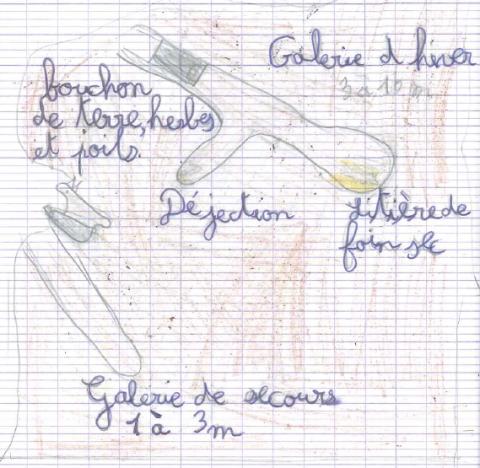 Galerie d'hiver
3 à 10 m
bouchon
de terre, herbes
et poils.
Déjection
Litière de
foin sec
Galerie de secours
1 à 3 m